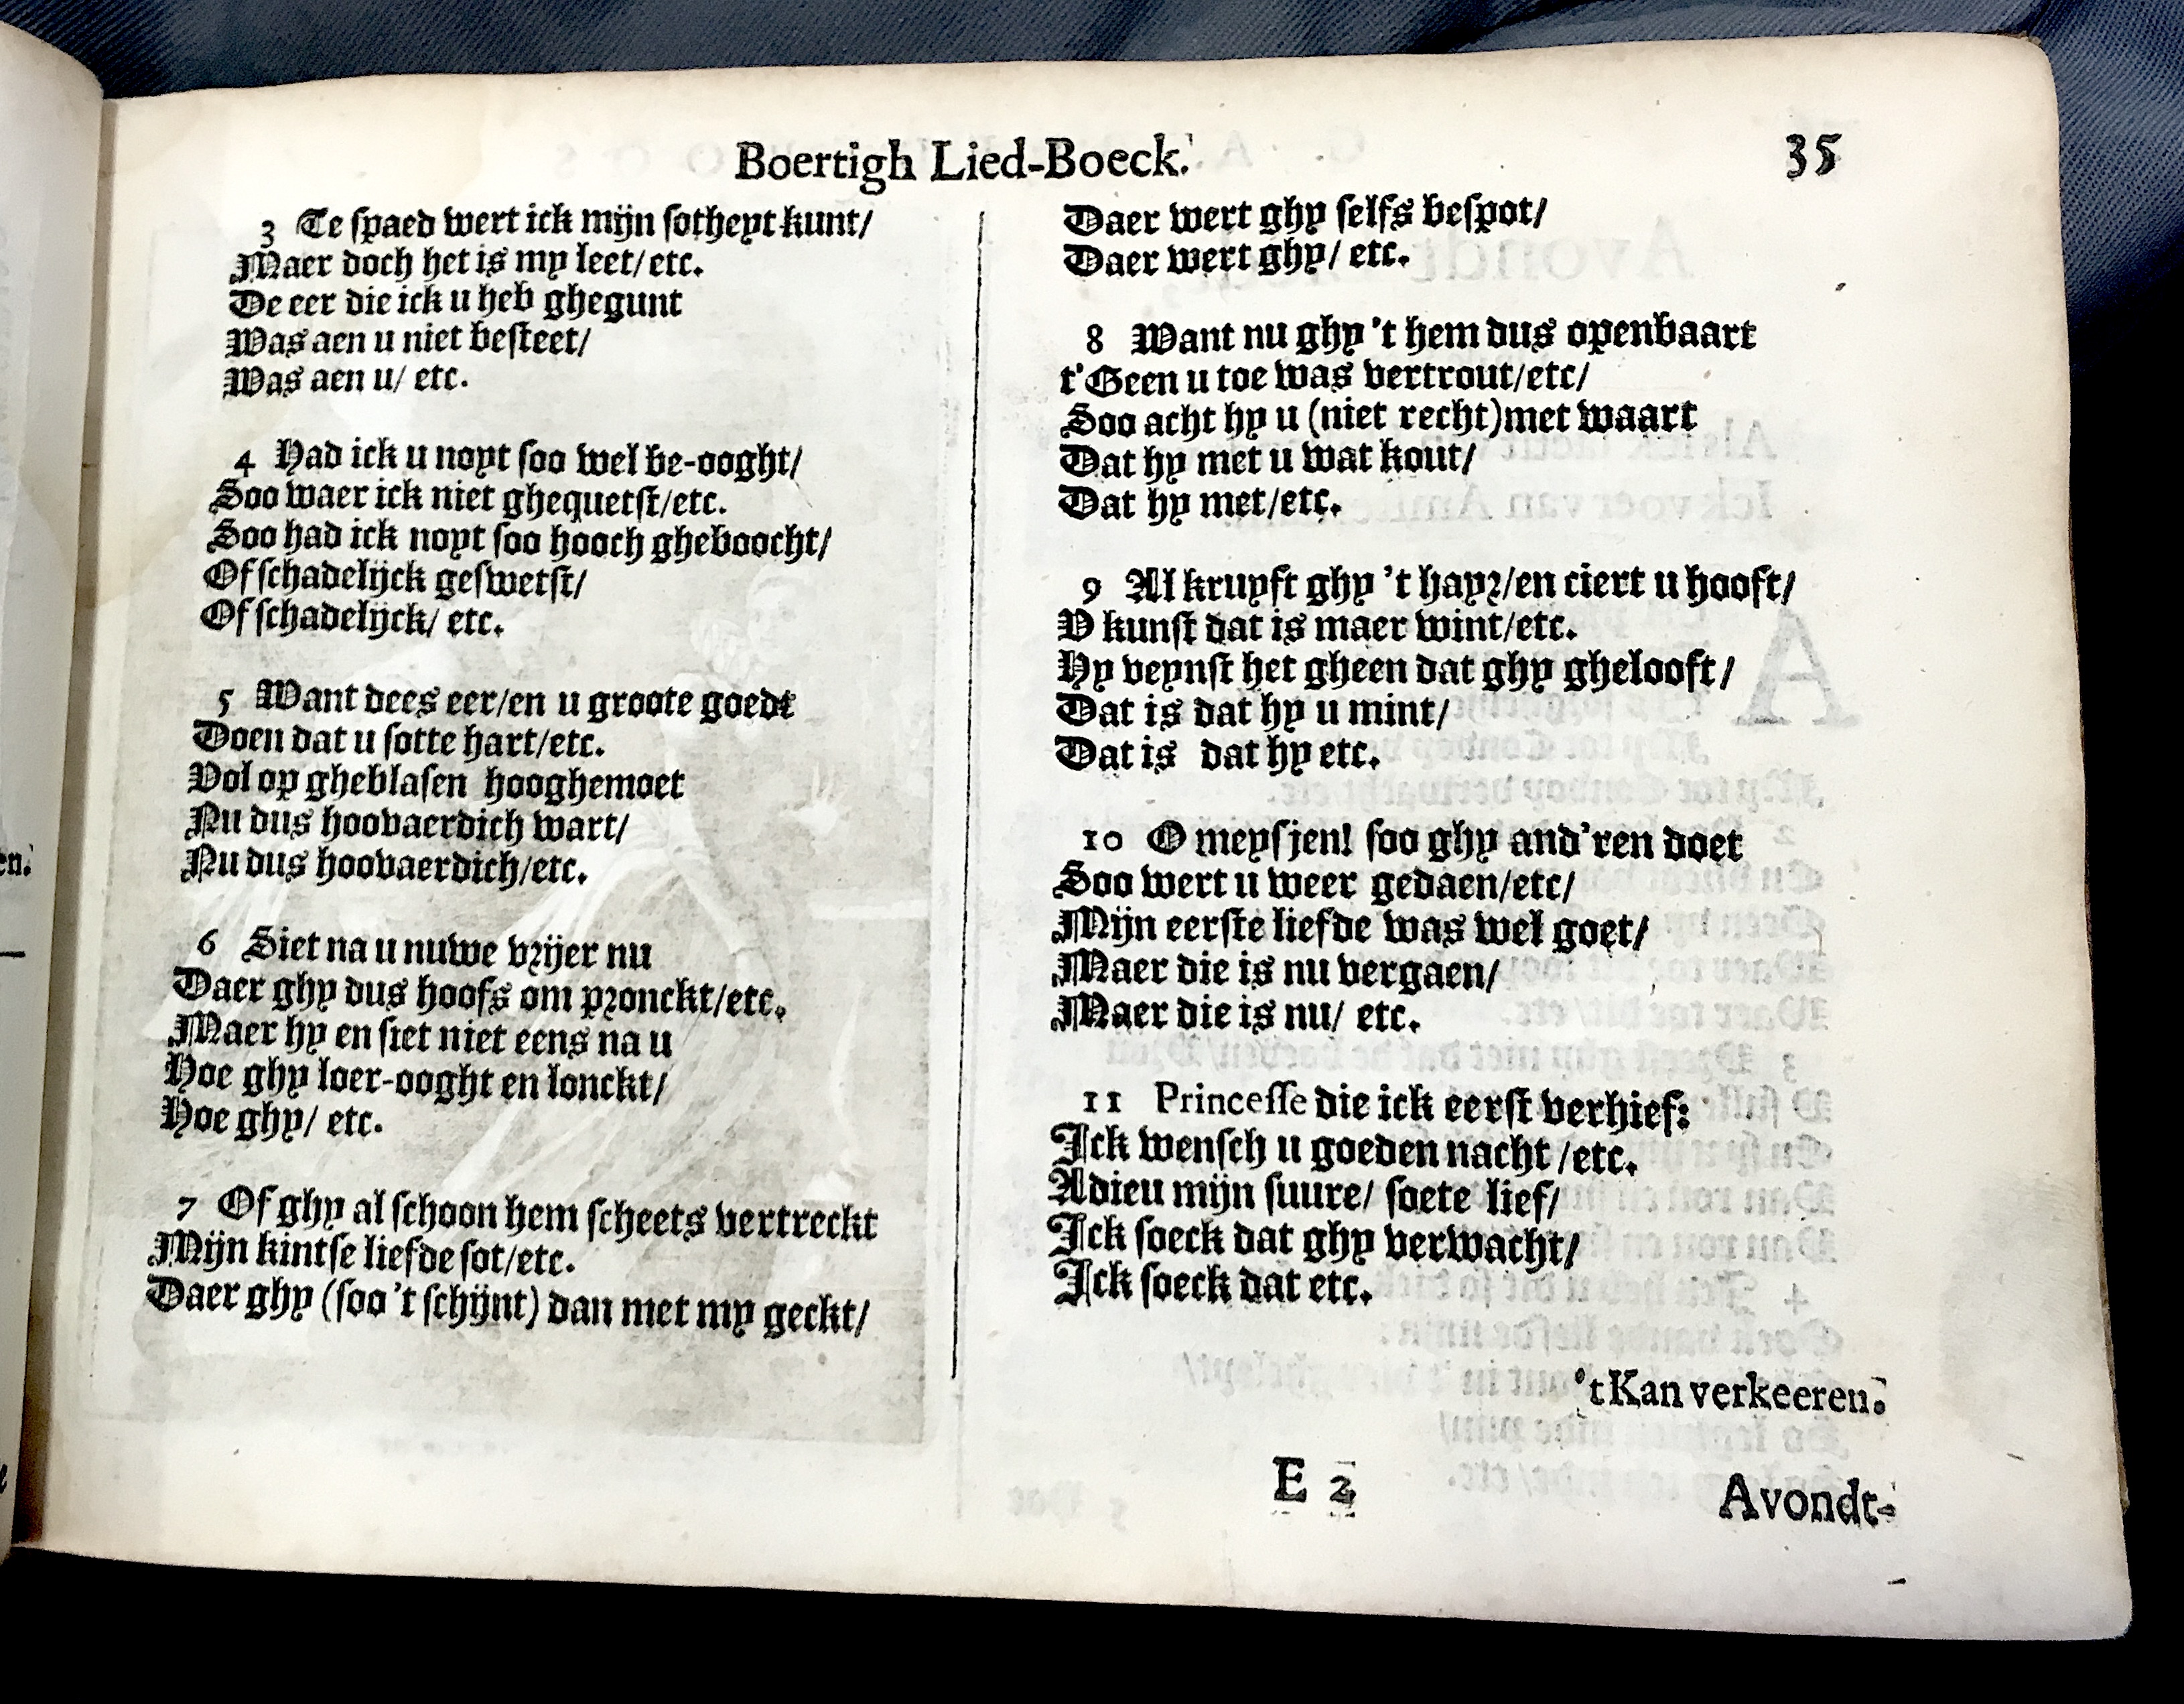 Boertigh Lied-Boeck.
35
3 Te spaed wert ick mijn sotheyt kunt/
Maer doch het is my leet/ etc.
De eer die ick u heb ghegunt
Was aen u niet besteet/
Was aen u/ etc.
4 Had ick u noyt soo wel be-ooght/
Soo waer ick niet ghequetst/etc.
Soo had ick noyt soo hooch gheboocht/
Of schadelijck geswetst/
Of schadelijck/ etc.
5 Want dees eer/en u groote goedt
Doen dat u sotte hart/etc.
Vol op gheblasen hooghemoet
Nu dus hoovaerdich wart/
Nu dus hoovaerdich/etc.
6 Siet na u nuwe vrijer nu
Daer ghy dus hoofs om pronckt/etc.
Maer hy en siet niet eens na u
Hoe ghy loer-ooght en lonckt/
Hoe ghy/ etc.
7 Of ghy al schoon hem scheets vertreckt
Mijn kintse liefde sot/etc.
Daer ghy (soo 't schijnt) dan met my geckt/
Daer wert ghy selfs bespot/
Daer wert ghy/ etc.
8 Want nu ghy 't hem dus openbaart
t'Geen u toe was vertrout/etc/
Soo acht hy u (niet recht)met waart
Dat hy met u wat kout/
Dat hy met/etc.
9 Al kruyft ghy 't hayr/en ciert u hooft/
V kunst dat is maer wint/etc.
Hy veynst het gheen dat ghy ghelooft/
Dat is dat hy u mint/
Dat is dat hy etc.
10 O meysjen! soo ghy and'ren doet
Soo wert u weer gedaen/etc/
Mijn eerste liefde was wel goet/
Maer die is nu vergaen/
Maer die is nu/ etc.
11 Princesse die ick eerst verhief:
Ick wensch u goeden nacht /etc.
Adieu mijn suure/ soete lief/
Ick soeck dat ghy verwacht/
Ick soeck dat etc.
't Kan verkeeren.
E 2
Avondt-